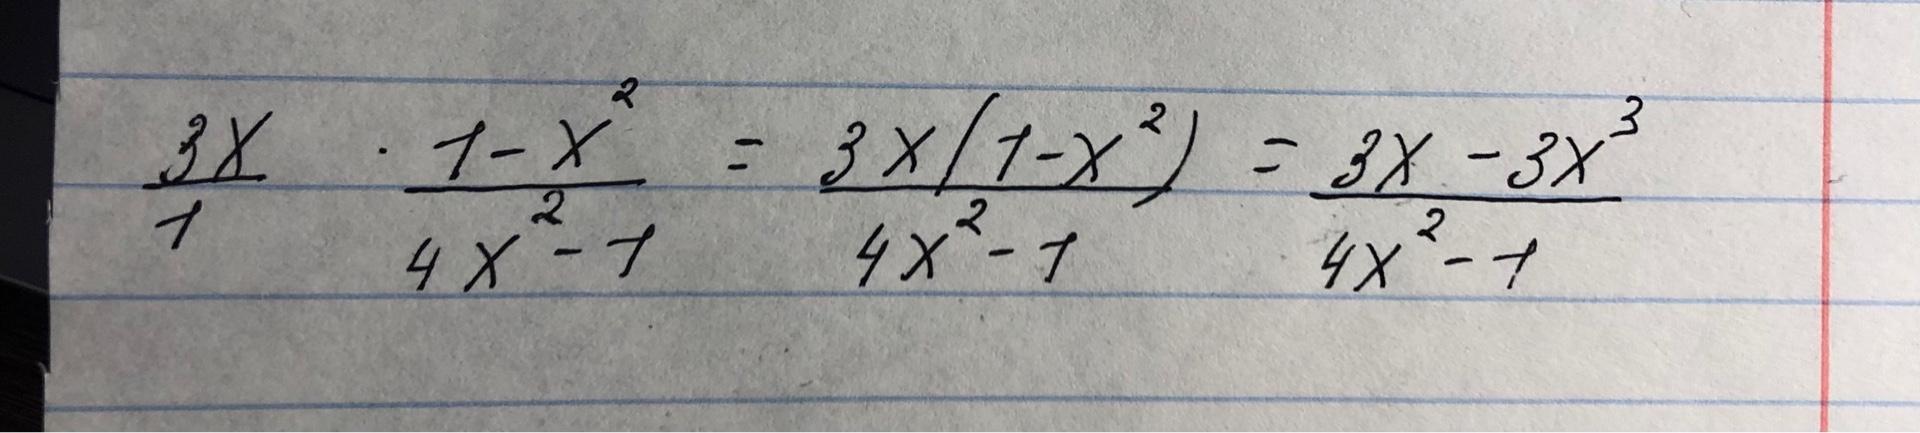 3x/1 · (1-x²)/(4x²-1) = 3x(1-x²)/(4x²-1) = (3x-3x³)/(4x²-1)